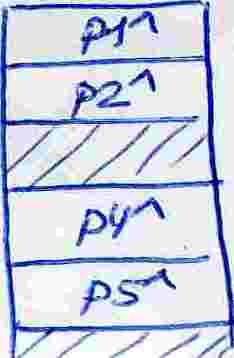 P1^
P2^
P4^
P5^